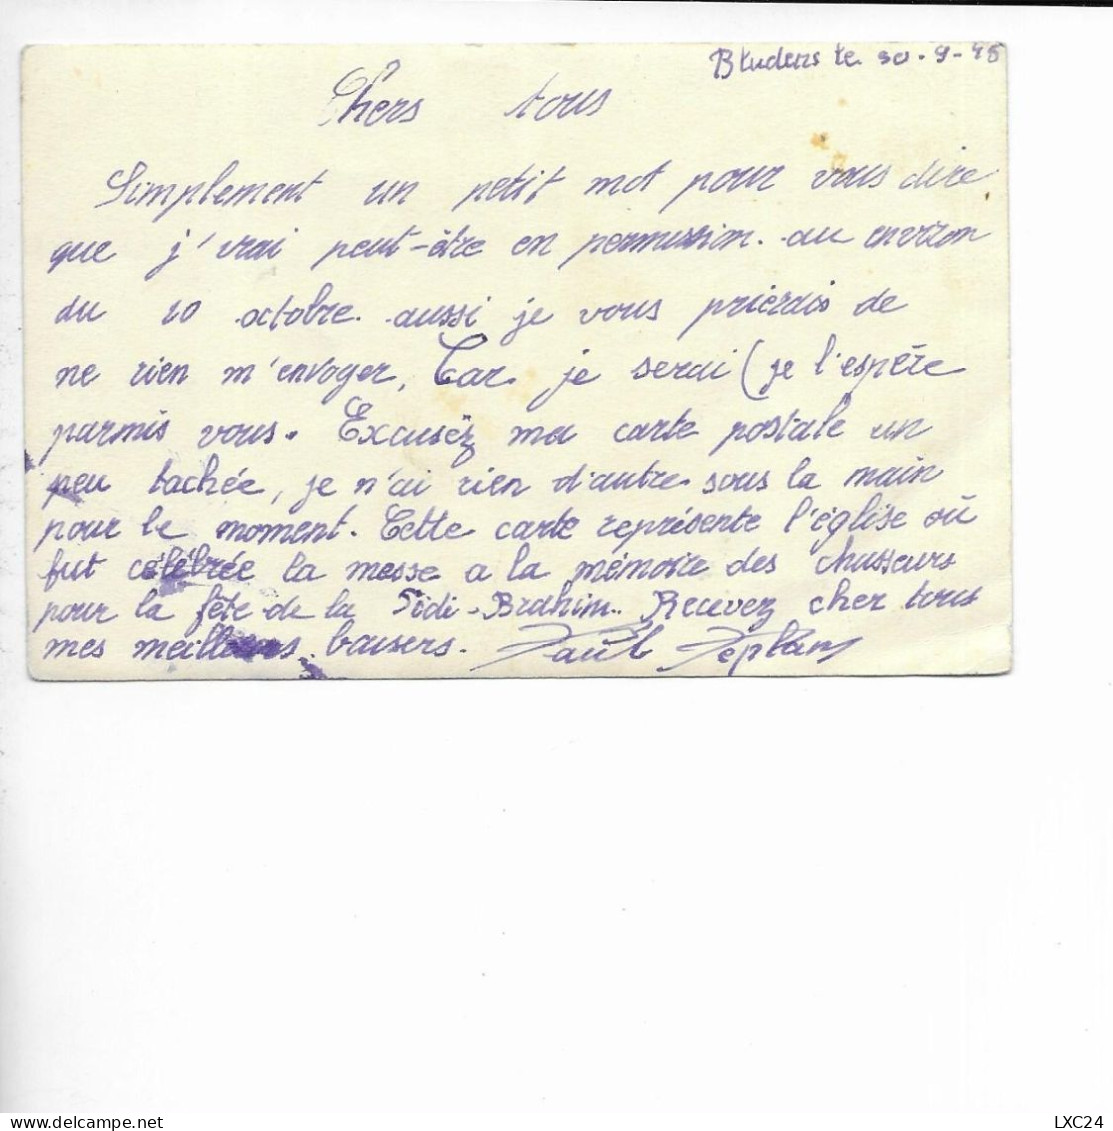 Bludens le 30-9-45
Chers tous
Simplement un petit mot pour vous dire
que j'irai peut-être en permission. au environ
du 10 octobre. aussi je vous prierais de
ne rien m'envoyer, Car je serai (je l'espère
parmis vous. Excusez ma carte postale un
peu tachée, je n'ai rien d'autre sous la main
pour le moment. Cette carte représente l'église où
fut célébrée la messe a la mémoire des chasseurs
pour la fête de la Sidi-Brahim. Recevez cher tous
mes meilleurs baisers. Paul
LXC24